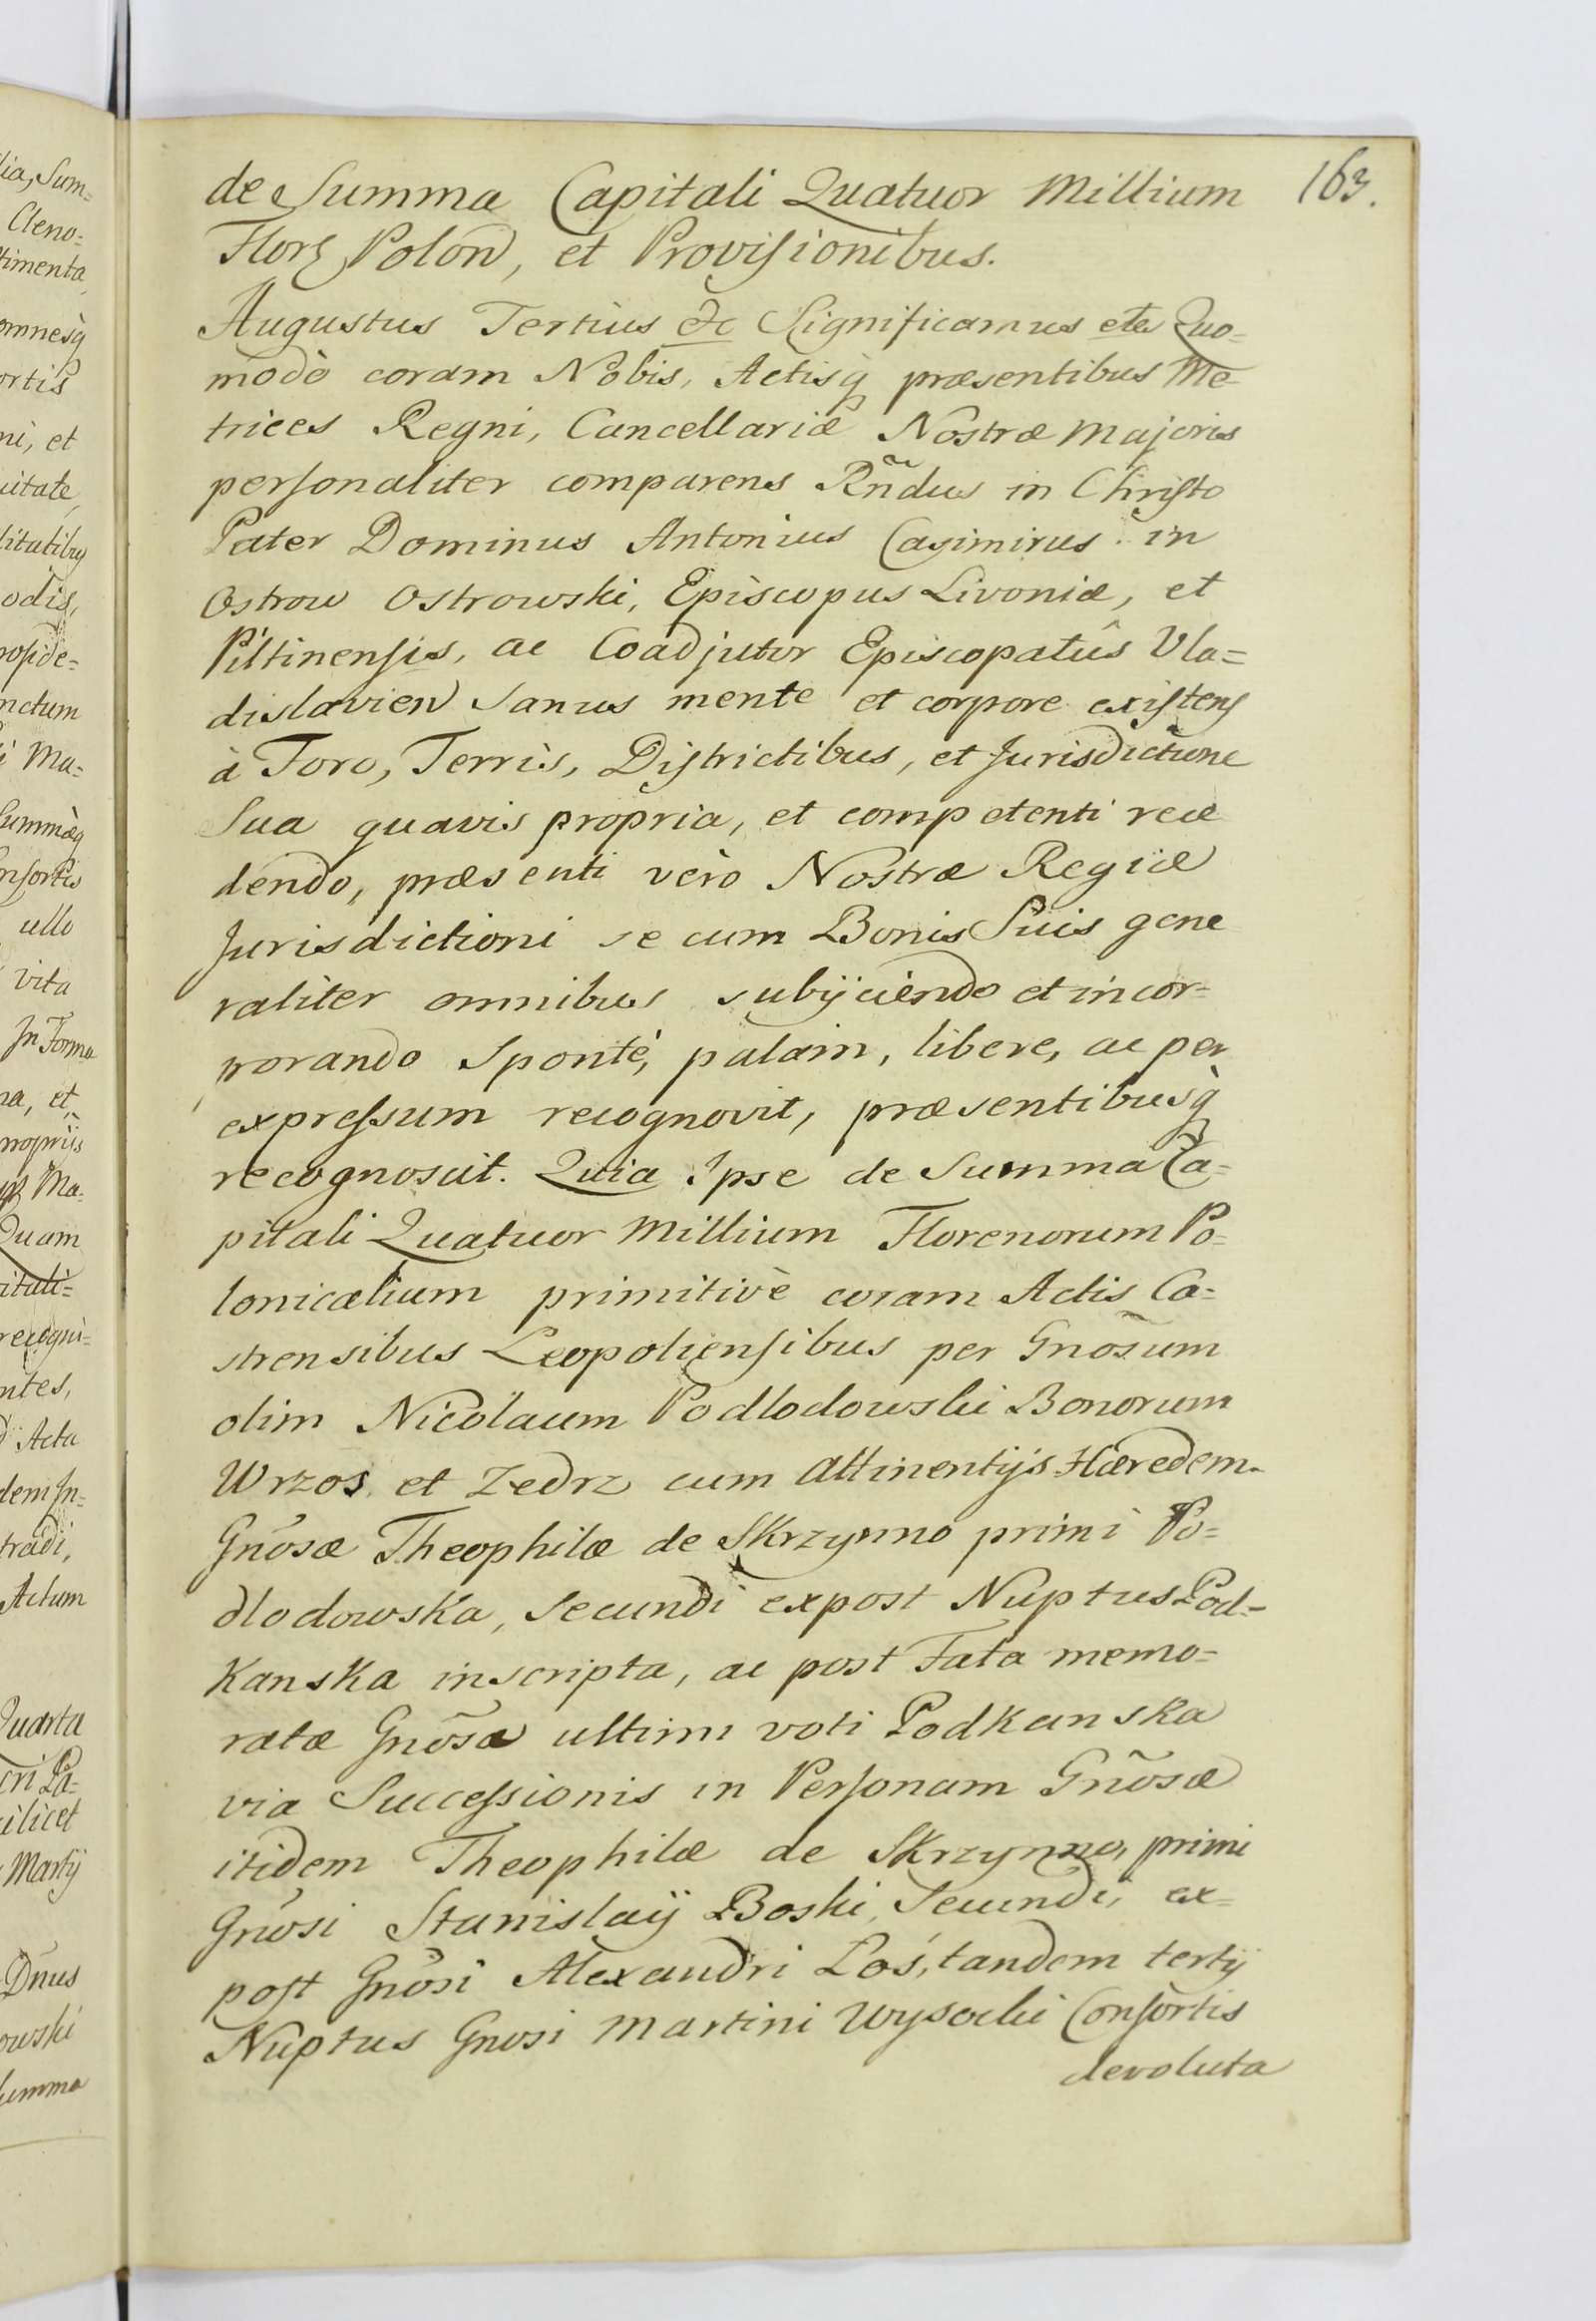 163.
de Summa Capitali Quatuor Millium
Flor Polon, et Provisionibus.
Augustus Tertius &c Significamus etc Quo=
modò coram Nobis, Actisq̀ præsentibus Me-
trices Regni, Cancellariæ Nostræ Majoris
personaliter comparens Rñdus in Christo
Pater Dominus Antonius Casimirus in
Ostrow Ostrowski, Episcopus Livoniæ, et
Piltinensis, ac Coadjutor Episcopatûs Vla=
dislavien sanus mente et corpore existens
à Foro, Terris, Districtibus, et Jurisdictione
Sua quavis propria, et competenti rece
dendo, præsenti vèro Nostræ Regiæ
Jurisdictioni se cum Bonis Suis gene
raliter omnibus subijciendo et incor=
porando sponte, palam, libere, ac per
expressum recognovit, præsentibusq̀
recognoscit. Quia Ipse de Summa Ca=
pitali Quatuor Millium Florenorum Po=
lonicalium primitivè coram Actis Ca=
strensibus Leopoliensibus per Gnõsum
olim Nicolaum Podlodowski Bonorum
Wrzos et Zedrz cum Attinentijs Hæredem
Gnõsæ Theophilæ de Skrzynno primi Po=
dlodowska, secundi expost Nuptus Pod=
kanska inscripta, ac post Fata memo=
ratæ Gnõsæ ultimi voti Podkanska
via Successionis in Personam Gnõsæ
itidem Theophilæ de Skrzynno, primi
Gnõsi Stanislaij Boski, secundi, ex=
post Gnõsi Alexandri Łoś, tandem tertij
Nuptus Gnosi Martini Wysocki Consortis
devoluta